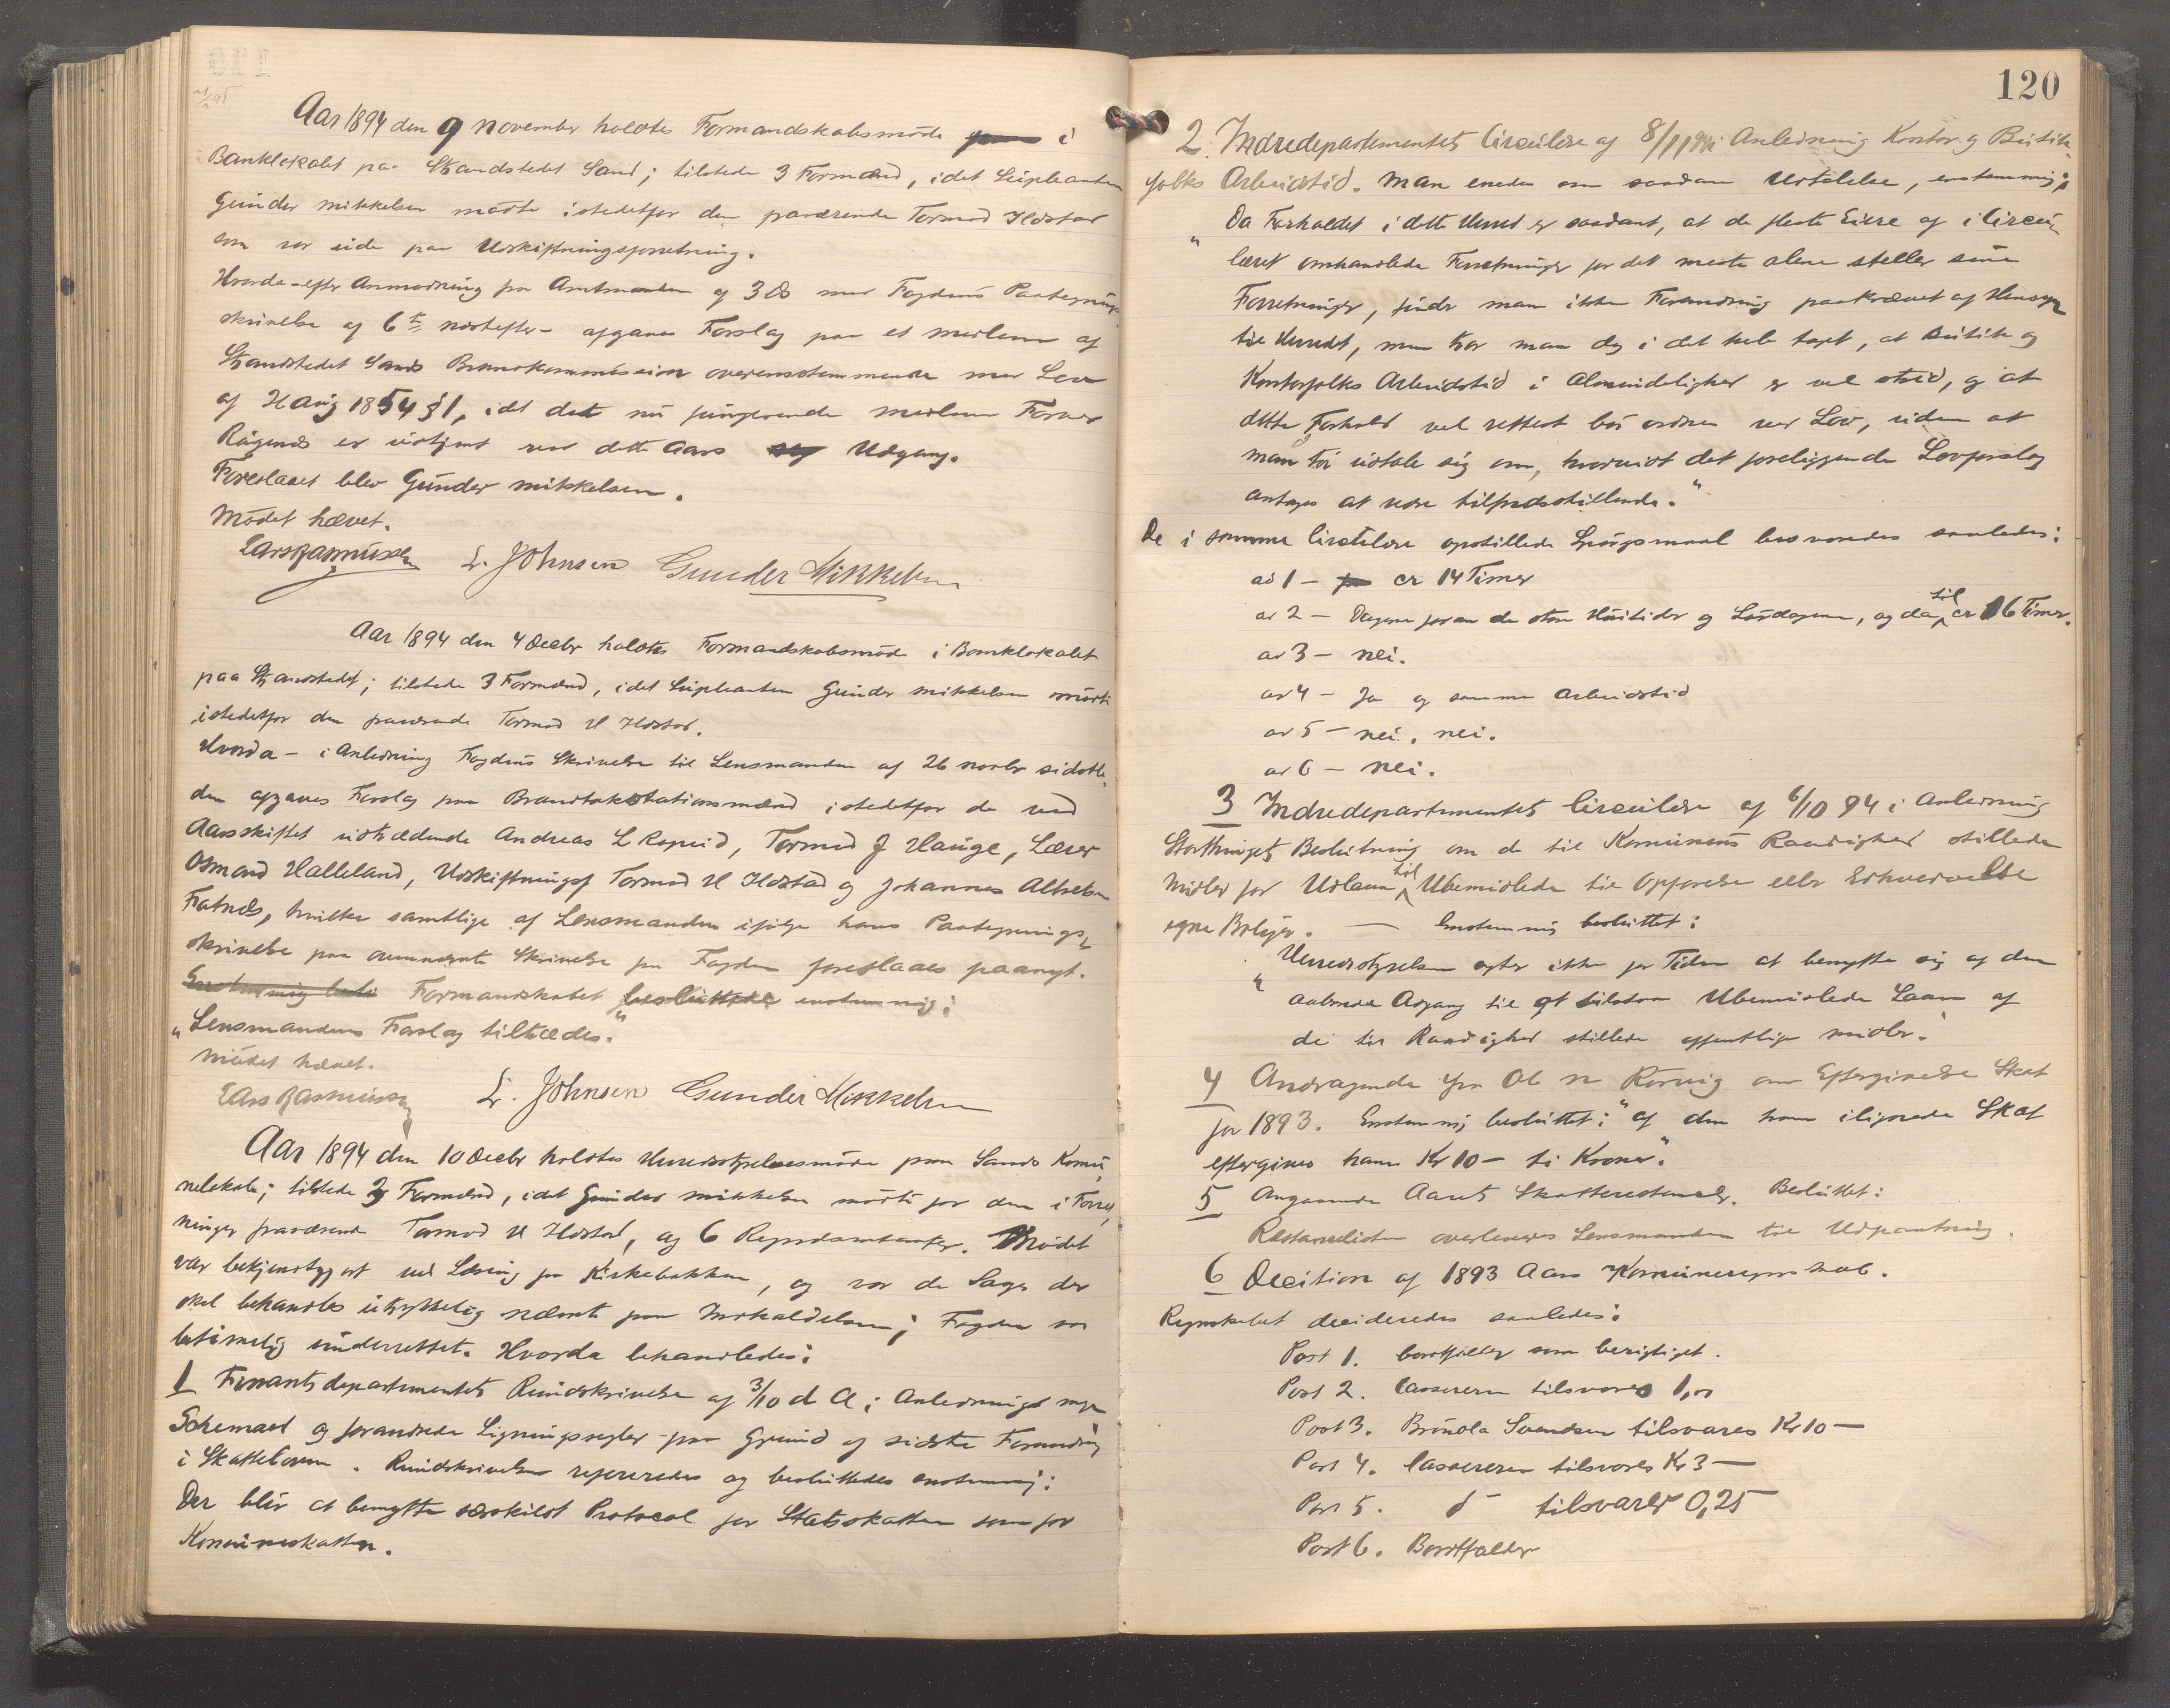 Aar 1894 den 9 November holdtes Formandskabsmøde i
Banklokalet paa Strandstedet Sand; tilstede 3 Formænd, idet Supleanten
Gunder Mikkelsen mødte istedetfor den fraværende Tormod Ilostad
som var ude paa Udskiftningsforretning.
Hvorda – efter Anmodning fra Amtmanden af 3 ds med Fogdens Paategnings
skrivelse af 6te næstefter – afgaves Forslag paa et Medlem af
Strandstedet Sands Brandkommission overensstemmende med Lov
af 2 Aug 1854 § 1, idet det nu fungerende Medlem Farver
er udtjent ved dette Aars Udgang.
Foreslaaet blev Gunder Mikkelsen.
Mødet hævet.
Lars Rasmussen L. Johnsen Gunder Mikkelsen
Aar 1894 den 4 Decbr holdtes Formandskabsmøde i Banklokalet
paa Strandstedet; tilstede 3 Formænd, idet Supleanten Gunder Mikkelsen mødte
istedetfor den fraværende Tormod H Ilostad.
Hvorda – i Anledning Fogdens Skrivelse til Lensmanden af 26 Novbr sidstl.
den afgaves Forslag paa Brandtakstationsmænd istedetfor de ved
Aarsskiftet udtrædende Andreas L Ropeid, Tormod J Hauge, Lærer
Osmond Halleland, Udskiftningsf Tormod H Ilostad og Johannes
Fatnes, hvilke samtlige af Lensmanden ifølge hans Paategnings-
skrivelse paa ovennævnte Skrivelse fra Fogden foreslaaes paanyt.
Enstemmig besl Formandskabet besluttede enstemmig:
"Lensmandens Forslag tiltrædes."
Mødet hævet.
Lars Rasmussen L. Johnsen Gunder Mikkelsen
Aar 1894 den 10 Decbr holdtes Herredsstyrelsesmøde paa Sands Komu
nelokale; tilstede 3 Formænd, idet Gunder Mikkelsen mødte for den i Forret
ninger fraværende Tormod H Ilostad, og 6 Repræsentanter. Mødet
var bekjendtgjort ved Læsning paa Kirkebakken, og var de Sager der
skal behandles udtrykkelig nævnt paa Indkaldelsen; Fogden var
betimelig underrettet. Hvorda behandledes:
1 Finantsdepartementets Rundskrivelse af 3/10 d A i Anledning nye
Schemaer og forandrede Ligningsregler paa Grund af sidste Forandring
i Skatteloven. Rundskrivelsen refereredes og besluttedes enstemmig:
Der blir at benytte særskildt Protocol for Statsskatten som for
Komuneskatten.
120
2. Indredepartementets Circulære af 8/11 94 i Anledning Kontor og Butik-
folks Arbeidstid. Man enedes om saadan Udtalelse, enstemmig:
"Da Forholdet i dette Herred er saadant, at de fleste Eiere af i Circu-
læret omhandlede Forretninger for det meste alene steller sine
Forretninger, finder man ikke Forandring paakrævet af Hensyn
til Herredet, men tror man dog i det hele taget, at Butik og
Kontorfolks Arbeidstid i Almindelighed er vel strid, og at
dette Forhold vel rettest bør ordnes ved Lov, uden at
man tør udtale sig om, hvorvidt det foreliggende Lovforslag
antages at være tilfredsstillende."
De i samme Circulære opstillede Spørgsmaal besvaredes saaledes:
ad 1 – er 14 Timer
ad 2 – Dagene foran de store Høitider og Lørdagene, og da til er 16 Timer.
ad 3 – Nei.
ad 4 – Ja og samme Arbeidstid
ad 5 – Nei, nei.
ad 6 – Nei.
3 Indredepartementets Circulære af 6/10 94 i Anledning
Storthingets Beslutning om de til Komunens Raadighed stillede
Midler for Udlaan til Ubemidlede til Opførelse eller Erhvervelse
egne Boliger. — Enstemmig besluttet:
"Herredsstyrelsen agter ikke for Tiden at benytte sig af den
aabnede Adgang til at tilstaa Ubemidlede Laan af
de til Raadighed stillede offentlige Midler."
4 Andragende fra Ole N Rørvig om Eftergivelse Skat
for 1893. Enstemmig besluttet: "af den ham ilignede Skat
eftergives ham Kr 10 – ti Kroner."
5 Angaaende Aarets Skatterestancer. Besluttet:
Restancelisten overleveres Lensmanden til Udpantning.
6 Decition af 1893 Aars Komuneregnskab.
Regnskabet decideredes saaledes:
Post 1. bortfalder som berigtiget.
Post 2. Cassereren tilsvarer 1,00
Post 3. Svendsen tilsvares Kr 10 —
Post 4. Cassereren tilsvares Kr 3 —
Post 5. do tilsvarer 0,25
Post 6. Bortfalder